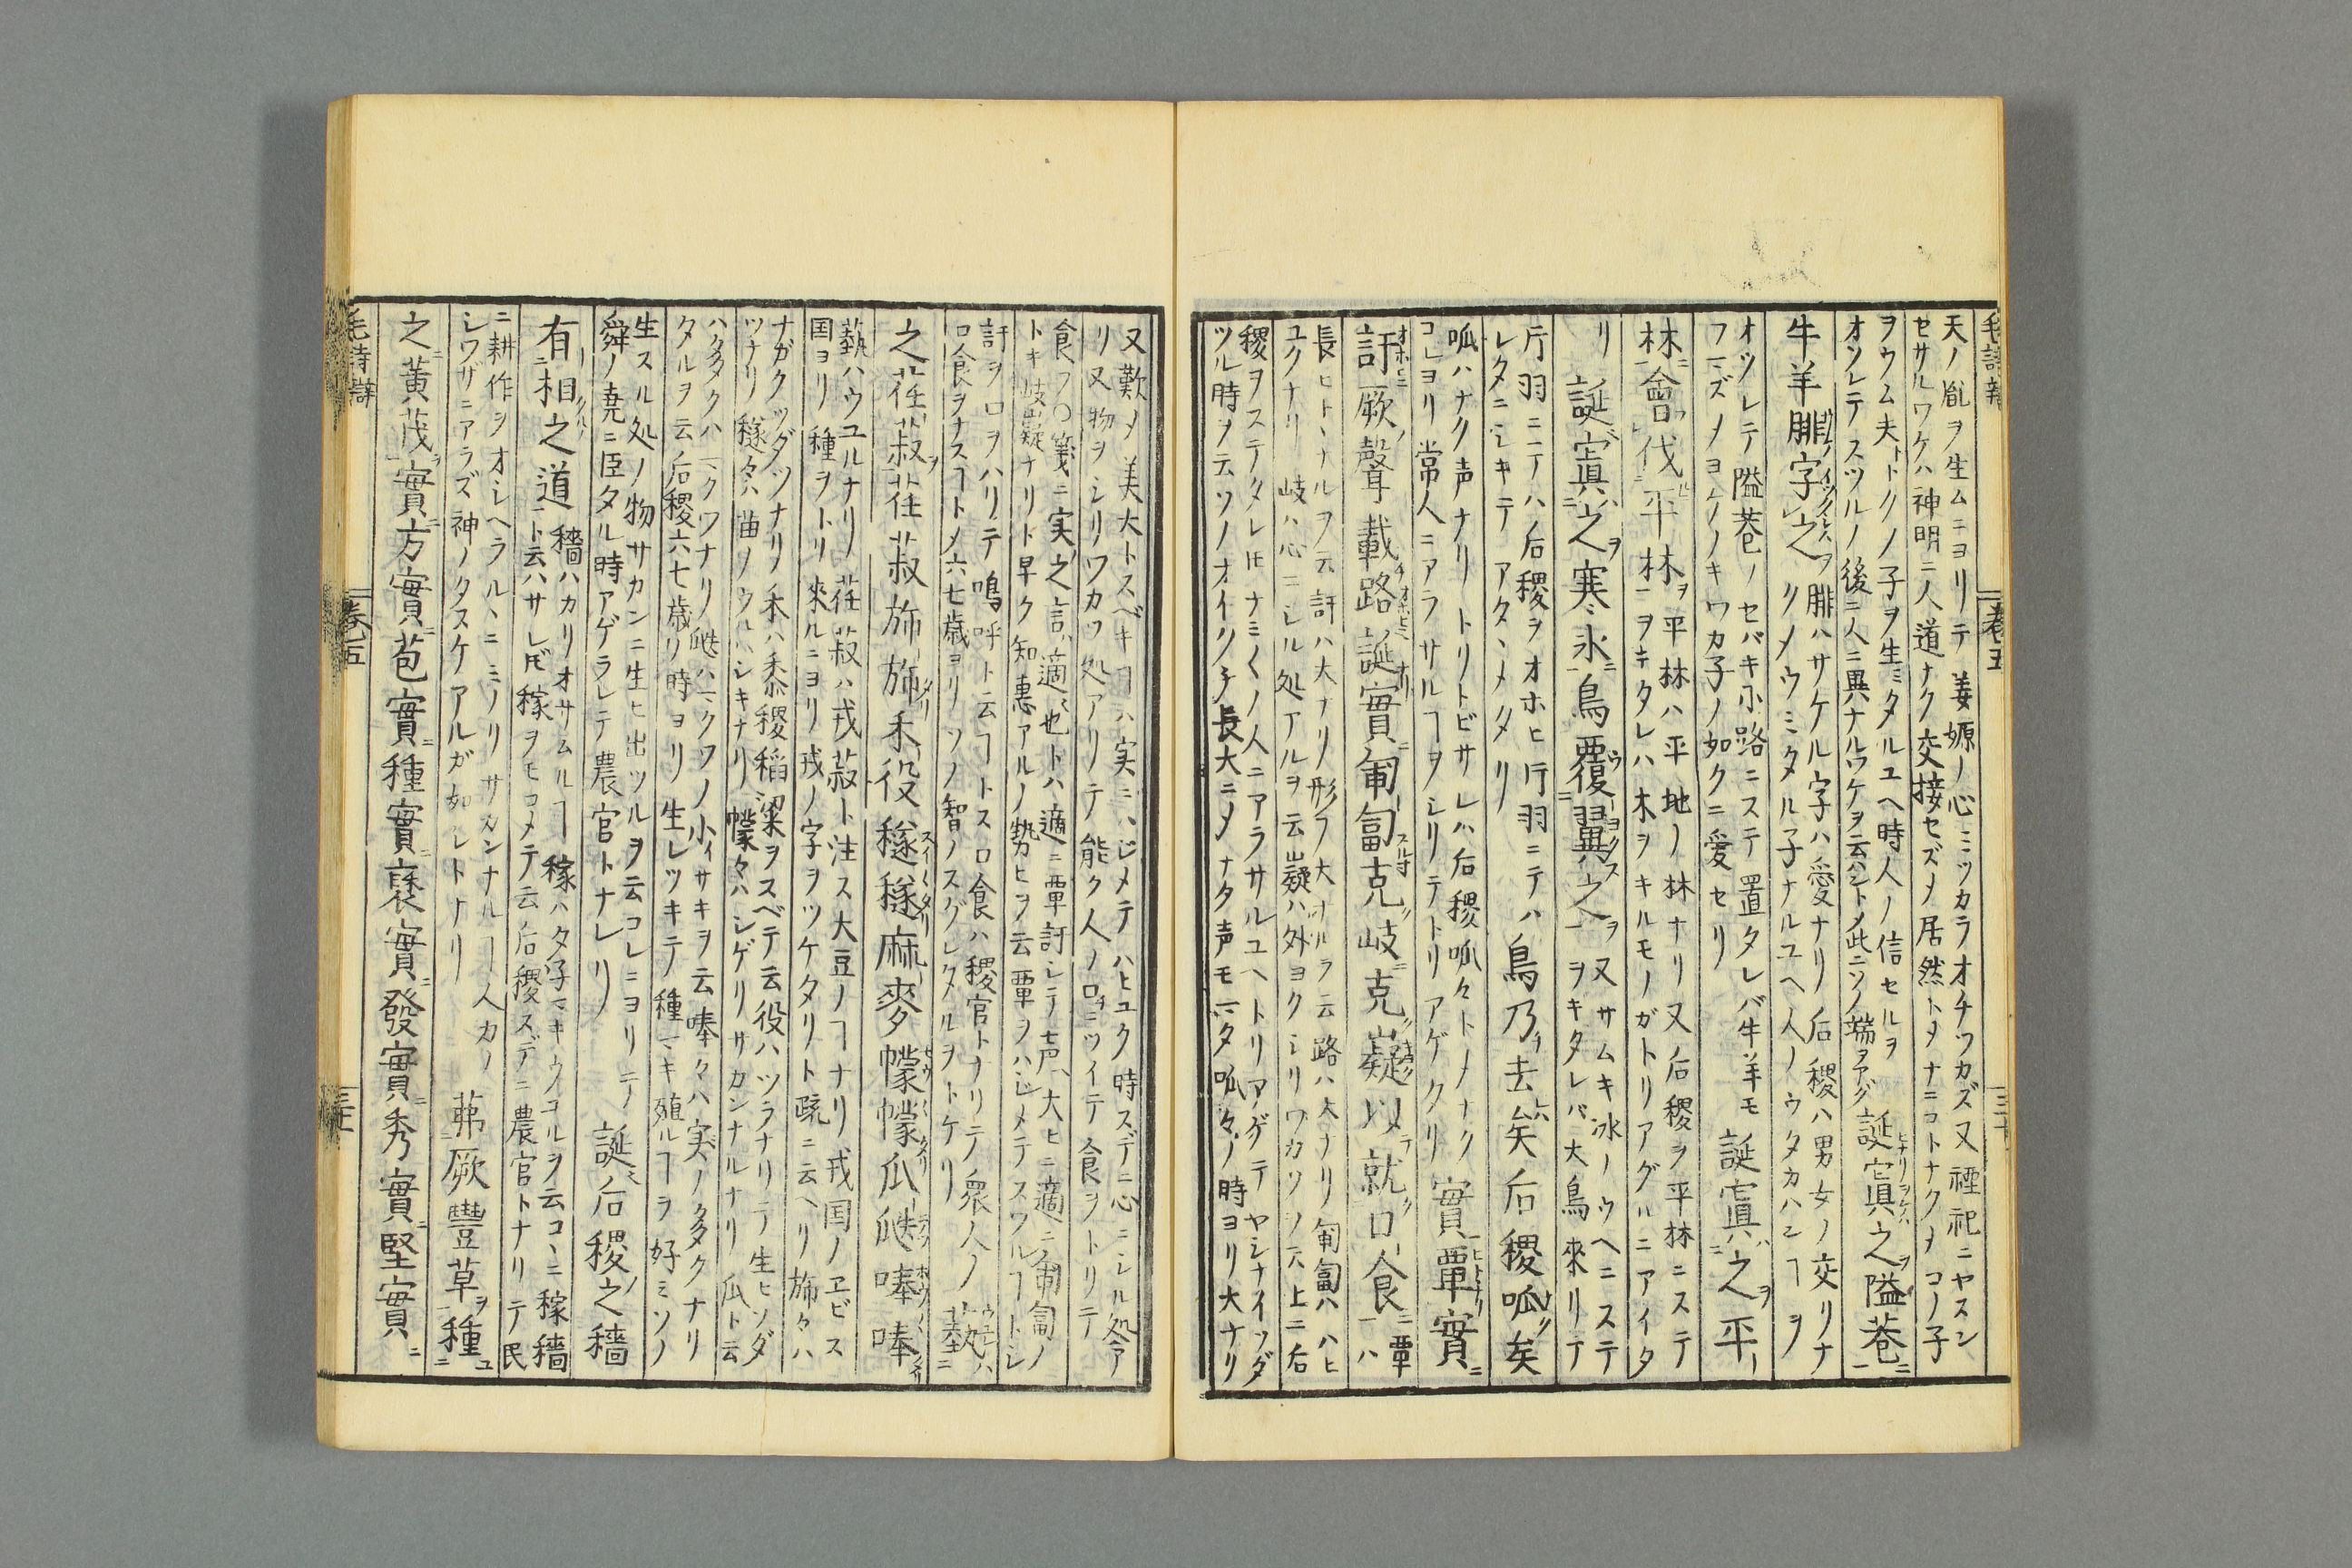 毛詩辨 卷五 三十
天ノ胤ヲ生ムニヨリテ姜嫄ノ心ミツカラオチツカズ又禋祀ニヤスン
セサルワケハ神明ニ人道ナク交接セズメ居然トメナニコトナクメコノ子
ヲウム夫トクノ子ヲ生ミタルユヘ時人ノ信セルヲ
オソレテスツルノ後ニ人ニ異ナルワケヲ云ハントメ此ニソノ端ヲアグ
誕寘之隘巷
牛羊腓字之
腓ハサケル字ハ愛ナリ后稷ハ男女ノ交リナ
クメウミタル子ナルユヘ人ノウタカハンヿヲ
オソレテ隘巷ノセバキ小路ニステ置タレバ牛羊モ
フマズメヨケノキワカ子ノ如クニ愛セリ
誕寘之平
林會伐平林
平林ハ平地ノ林ナリ又后稷ヲ平林ニステ
ヲキタレハ木ヲキルモノガトリアグルニアイタ
リ
誕寘之寒冰鳥覆翼之
又サムキ冰ノウヘニステ
ヲキタレバ大鳥來リテ
片羽ニテハ后稷ヲオホヒ片羽ニテハ
レタニシキテアタヽメタリ
鳥乃去矣后稷呱矣
呱ハナク声ナリトリトビサレハ后稷呱々トメナク
コレヨリ常人ニアラサルヿヲシリテトリアゲタリ
實覃實
訏厥聲載路誕實匍匐克岐克嶷以就口食
覃
ハ
長ヒトヽナルヲ云訏ハ大ナリ形ノ大ナルヲ云路ハ大ナリ匍匐ハハヒ
ユクナリ岐ハ心ニシル処アルヲ云嶷ハ外ヨクシリワカツノ上ニ后
稷ヲステタレ𪜈ナミ〱ノ人ニアラサルユヘトリアゲテヤシナイソダ
ツル時ヲ云ソノ長大ニメナク声モマタ呱々ノ時ヨリ大ナリ
又歎メ美大トスベキヿハ実ニハジメテハヒユク時スデニ心ニシル処ア
リ又物ヲシリワカツ処アリテ能ク人ノ口ニツイテ食ヲトリテ
食フ○箋ニ実之言ハ適也トハ適ニ覃訏シテ声大ヒニ適ニ匍匐ノ
トキ岐嶷ナリト早ク知惠アルノ勢ヒヲ云覃ヲハジメテスワルヿトシ
訏ヲ口ヲハリテ鳴呼ト云ヿトス口食ハ稷官トナリテ衆人ノ
口食ヲナスヿトメ六七歳ヨリソノ智ノスグレタルヲトケリ
蓺
之荏菽荏菽旆旆禾役穟穟麻麥幪幪瓜瓞唪唪
藝ハウユルナリ荏菽ハ戎菽ト注ス大豆ノヿナリ戎国ノヱビス
国ヨリ種ヲトリ來ルニヨリ戎ノ字ヲツケタリト疏ニ云ヘリ旆々ハ
ナガクツダツナリノ禾ハ黍稷稻粱ヲスベテ云役ハツラナリテ生ヒソダ
ツナリ穟々ハ苗ノウルハシキナリ幪々ハシゲリサカンナルナリ瓜ト云
ハ多クハマクワナリ瓞ハマクワノ小サキヲ云唪々ハ実ノ多クナリ
タルヲ云后稷六七歳ノ時ヨリ生レツキテ種マキ殖ルヿヲ好ミソノ
生スル処ノ物サカンニ生ヒ出ツルヲ云コレニヨリテ
舜ノ堯ニ臣タル時アゲラレテ農官トナレリ
誕后稷之穡
有相之道
穡ハカリオサムルヿ稼ハタネマキウユルヲ云コヽニ稼穡
ト云ハサレ𪜈稼ヲモコメテ云后稷スデニ農官トナリテ民
ニ耕作ヲオシヘラルヽニミノリサカンナルヿ人力ノ
シワザニアラズ神ノタスケアルガ如レトナリ
茀厥豐草種
之黃茂實方實苞實種實褎實發實秀實堅實
毛詩辨 卷五 三十